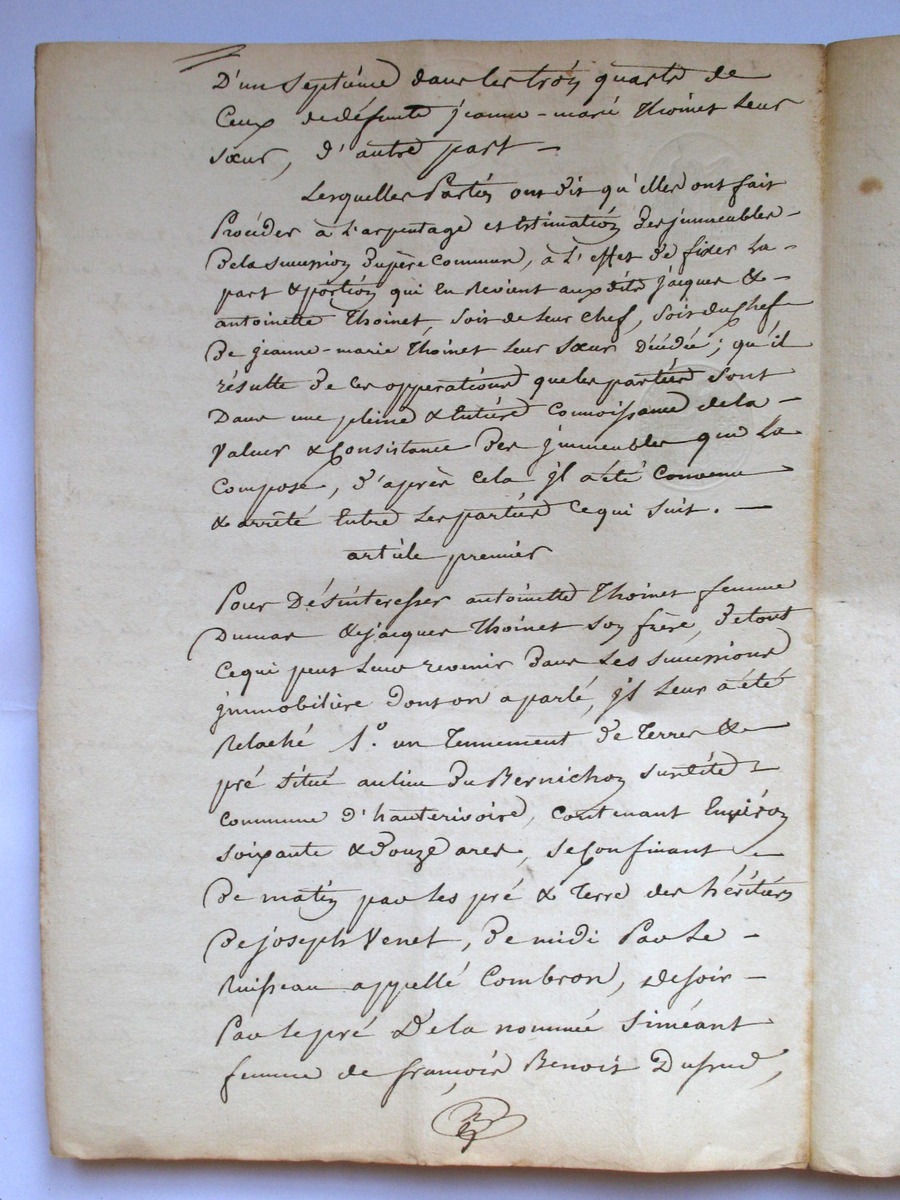 D'un Septième dans les trois quarts de
Ceux de défunte jeanne-marie Thoinet Leur
sœur, d'autre part —
Lesquelles Parties ont dit qu'elles ont fait
Procéder à L'arpentage et Estimation des jmmeubles -
De la succession du père Commun, à L'effet de fixer La -
part & portion qui En Revient aux dits jacques & -
antoinette Thoinet, soit de Leur chef, soit du Chef
De jeanne-marie Thoinet Leur sœur Décédée; qu'il
résulte de ces opperations que les parties sont
Dans une pleine & Entière Connoissance de la -
Valeur & Consistance des jmmeubles qui La
Compose, d'après cela jl a été Convenu
& arrêté Entre Les parties Ce qui suit. —
article premier
Pour Désinteresser antoinette Thoinet femme
Dumas & jacques Thoinet son frère, de tout
Ce qui peut Leur revenir dans Les successions
jmmobilière dont on a parlé, jl Leur a été
Relaché 1.° un Tennement de Terres &
pré situé au lieu du Bernichon susdite -
Commune d'hauterivoire, Contenant Environ
soixante & douze ares, se Confinant —
De matin par les pré & Terre des héritiers
De joseph Venet, de midi Par Le -
Ruisseau appellé Combron, de soir -
Par le pré de la nommée Siméant
femme de françois Benoit